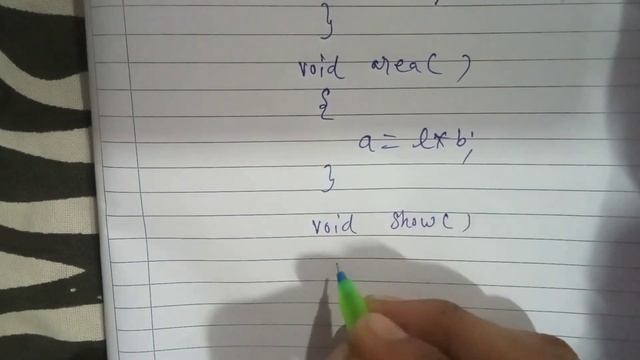 }
void area( )
{
a = l * b;
}
void show( )